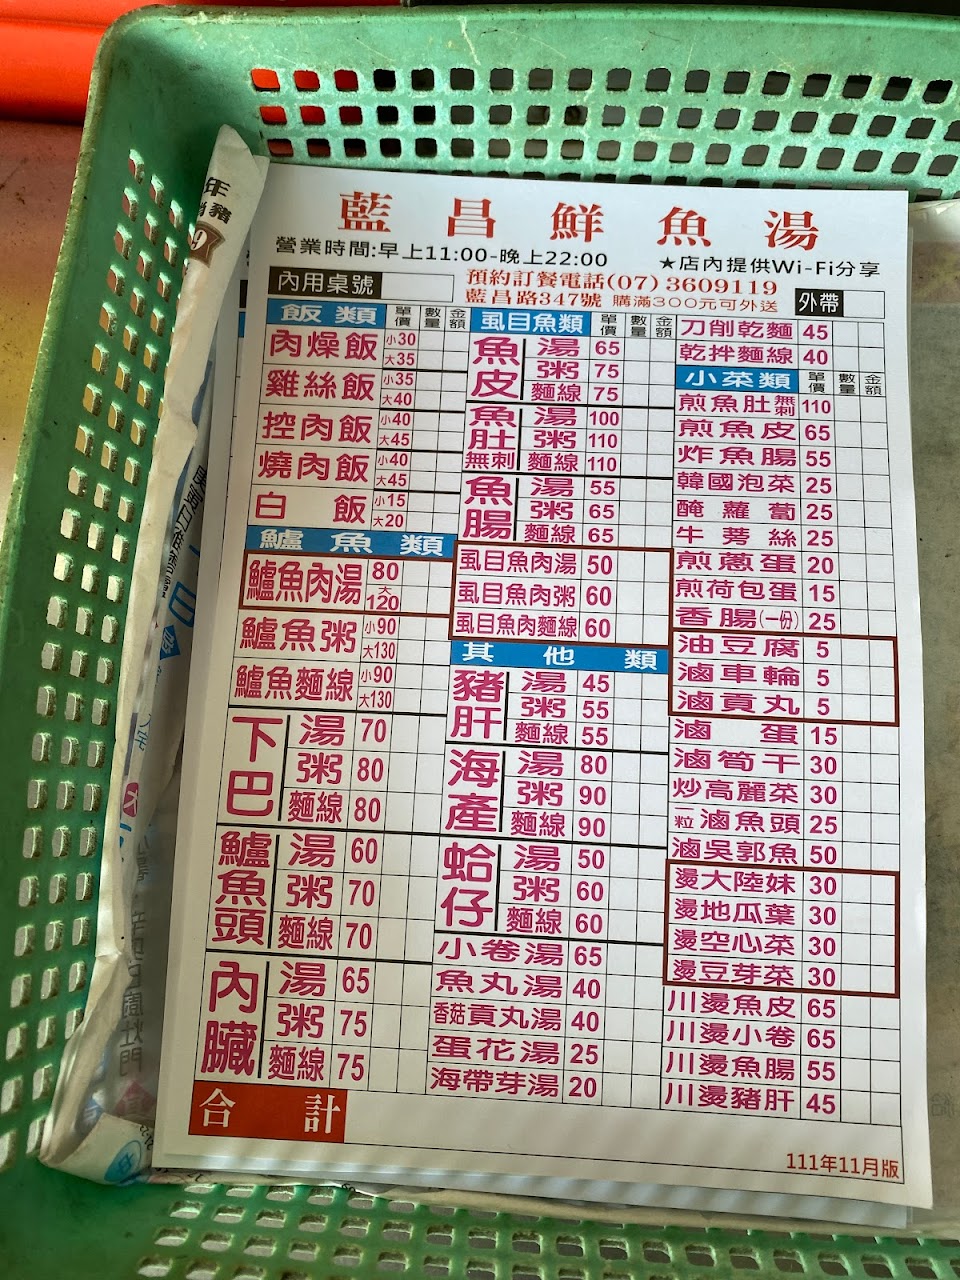 藍昌鮮魚湯
營業時間:早上11:00-晚上22:00
★店內提供Wi-Fi分享
內用桌號
預約訂餐電話(07)3609119
藍昌路347號 購滿300元可外送
外帶
飯類 單價 數量 金額
肉燥飯 小30 大35
雞絲飯 小35 大40
控肉飯 小40 大45
燒肉飯 小40 大45
白飯 小15 大20
鱸魚類
鱸魚肉湯 80 大120
鱸魚粥 小90 大130
鱸魚麵線 小90 大130
下巴
湯 70
粥 80
麵線 80
鱸魚頭
湯 60
粥 70
麵線 70
內臟
湯 65
粥 75
麵線 75
合計
虱目魚類 單價 數量 金額
魚皮
湯 65
粥 75
麵線 75
魚肚無刺
湯 100
粥 110
麵線 110
魚腸
湯 55
粥 65
麵線 65
虱目魚肉湯 50
虱目魚肉粥 60
虱目魚肉麵線 60
其他類
豬肝
湯 45
粥 55
麵線 55
海產
湯 80
粥 90
麵線 90
蛤仔
湯 50
粥 60
麵線 60
小卷湯 65
魚丸湯 40
香菇貢丸湯 40
蛋花湯 25
海帶芽湯 20
刀削乾麵 45
乾拌麵線 40
小菜類 單價 數量 金額
煎魚肚無刺 110
煎魚皮 65
炸魚腸 55
韓國泡菜 25
醃蘿蔔 25
牛蒡絲 25
煎蔥蛋 20
煎荷包蛋 15
香腸(一份) 25
油豆腐 5
滷車輪 5
滷貢丸 5
滷蛋 15
滷筍干 30
炒高麗菜 30
一粒滷魚頭 25
滷吳郭魚 50
燙大陸妹 30
燙地瓜葉 30
燙空心菜 30
燙豆芽菜 30
川燙魚皮 65
川燙小卷 65
川燙魚腸 55
川燙豬肝 45
111年11月版